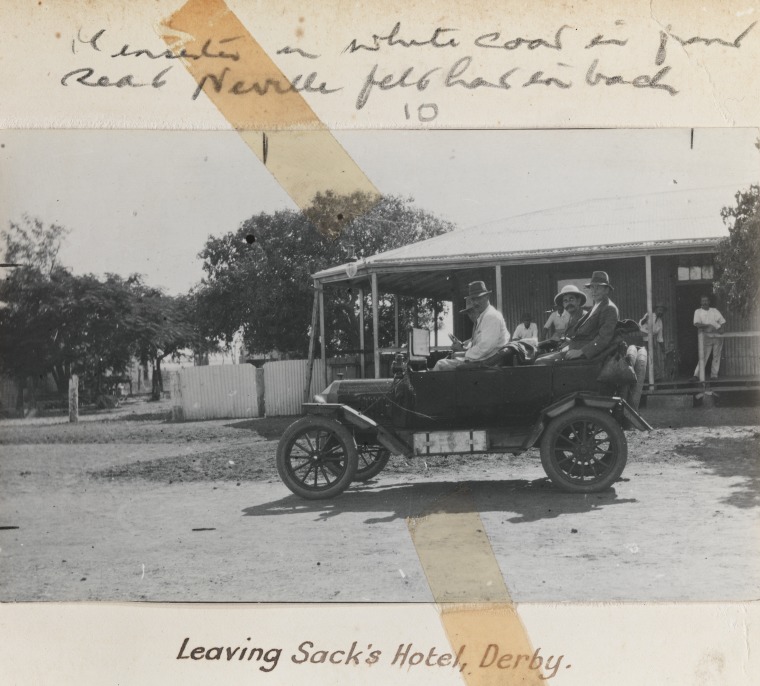 Minister in white coat in front
seat Neville felt hat in back
10
Leaving Sack's Hotel, Derby.